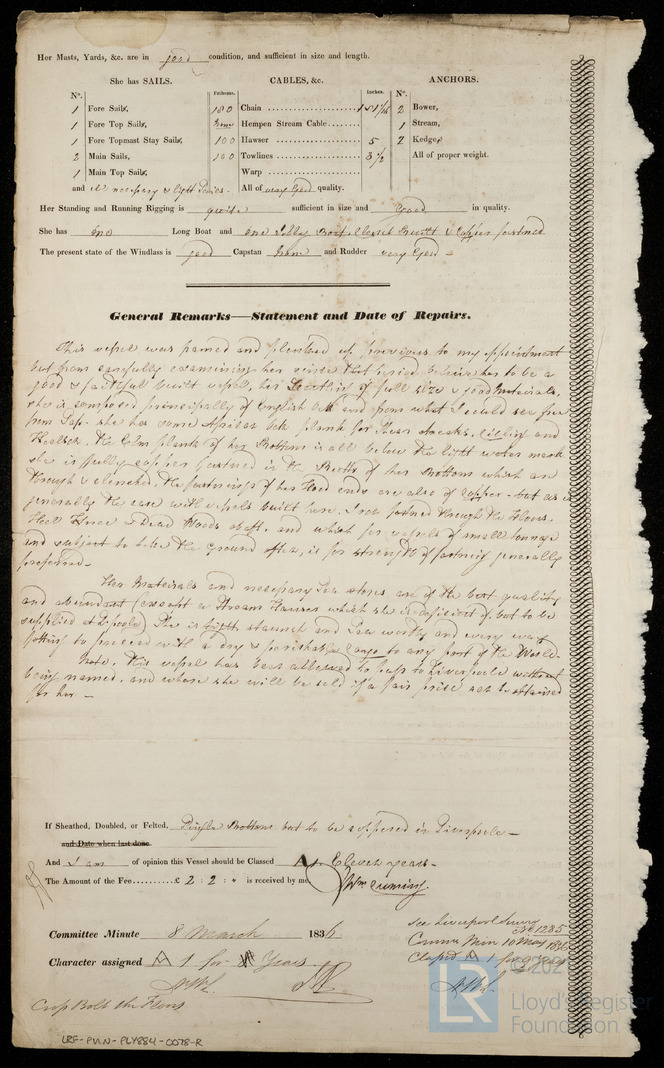 Her Masts, Yards, &c. are in good condition, and sufficient in size and length.
She has SAILS. CABLES, &c. ANCHORS.
No. Fathoms. Inches. No.
1 Fore Sails, 180 Chain 1 1/16 2 Bower,
1 Fore Top Sails, Hempen Stream Cable 1 Stream,
1 Fore Topmast Stay Sails, 100 Hawser 5 2 Kedge,
2 Main Sails, 100 Towlines 3 1/2 All of proper weight.
1 Main Top Sails, Warp
and all necessary & light All of very Good quality.
Her Standing and Running Rigging is quite sufficient in size and Good in quality.
She has no Long Boat and one Jolly Boat, Built & Copper fastened
The present state of the Windlass is good Capstan none and Rudder very Good
General Remarks—Statement and Date of Repairs.
This vessel was framed and planked up previous to my appointment
but from carefully examining her since that period believe her to be a
good & faithful built vessel, her Scantling of full size & good Materials,
she is composed principally of English Oak and from what I could see free
from Sap. she has some African Oak plank for Sheer streaks, and
. The Elm plank of her Bottom is all below the light water mark
she is fully copper fastened in the Butts of her Bottom which are
through & clenched. The fastenings of her Hood ends are also of copper - but as is
generally the case with vessels built here, Iron fastened through the Floors.
Heel Knee & Dead Woods abaft, and which for vessels of small tonnage
and subject to take the Ground often, is for strength of fastening generally
preferred.
Her Materials and necessary Sea stores are of the best quality
and abundant (except a Stream Hawser which she is deficient of, but to be
supplied at L'pool) She is tight staunch and Sea worthy and every way
fitting to proceed with a dry & perishable Cargo to any port of the World.
Note. This vessel has been allowed to pass to Liverpool without
being named, and where she will be sold if a fair price can be obtained
for her —
If Sheathed, Doubled, or Felted, Single Bottom but to be coppered in Liverpool —
and Date when last done
And I am of opinion this Vessel should be Classed A 1. Eleven years -
The Amount of the Fee £ 2 : 2 : " is received by me, Wm Cuming.
Committee Minute 8 March 1836
Character assigned A 1 for Years
See Liverpool Survey
No 1285
Comme Min 10 May 1836
Classed A 1 for 9 years
Crop Bolt the Floors
LRF-PUN-PLY884-0078-R
LR
© 202
Lloyd's Register
Foundation